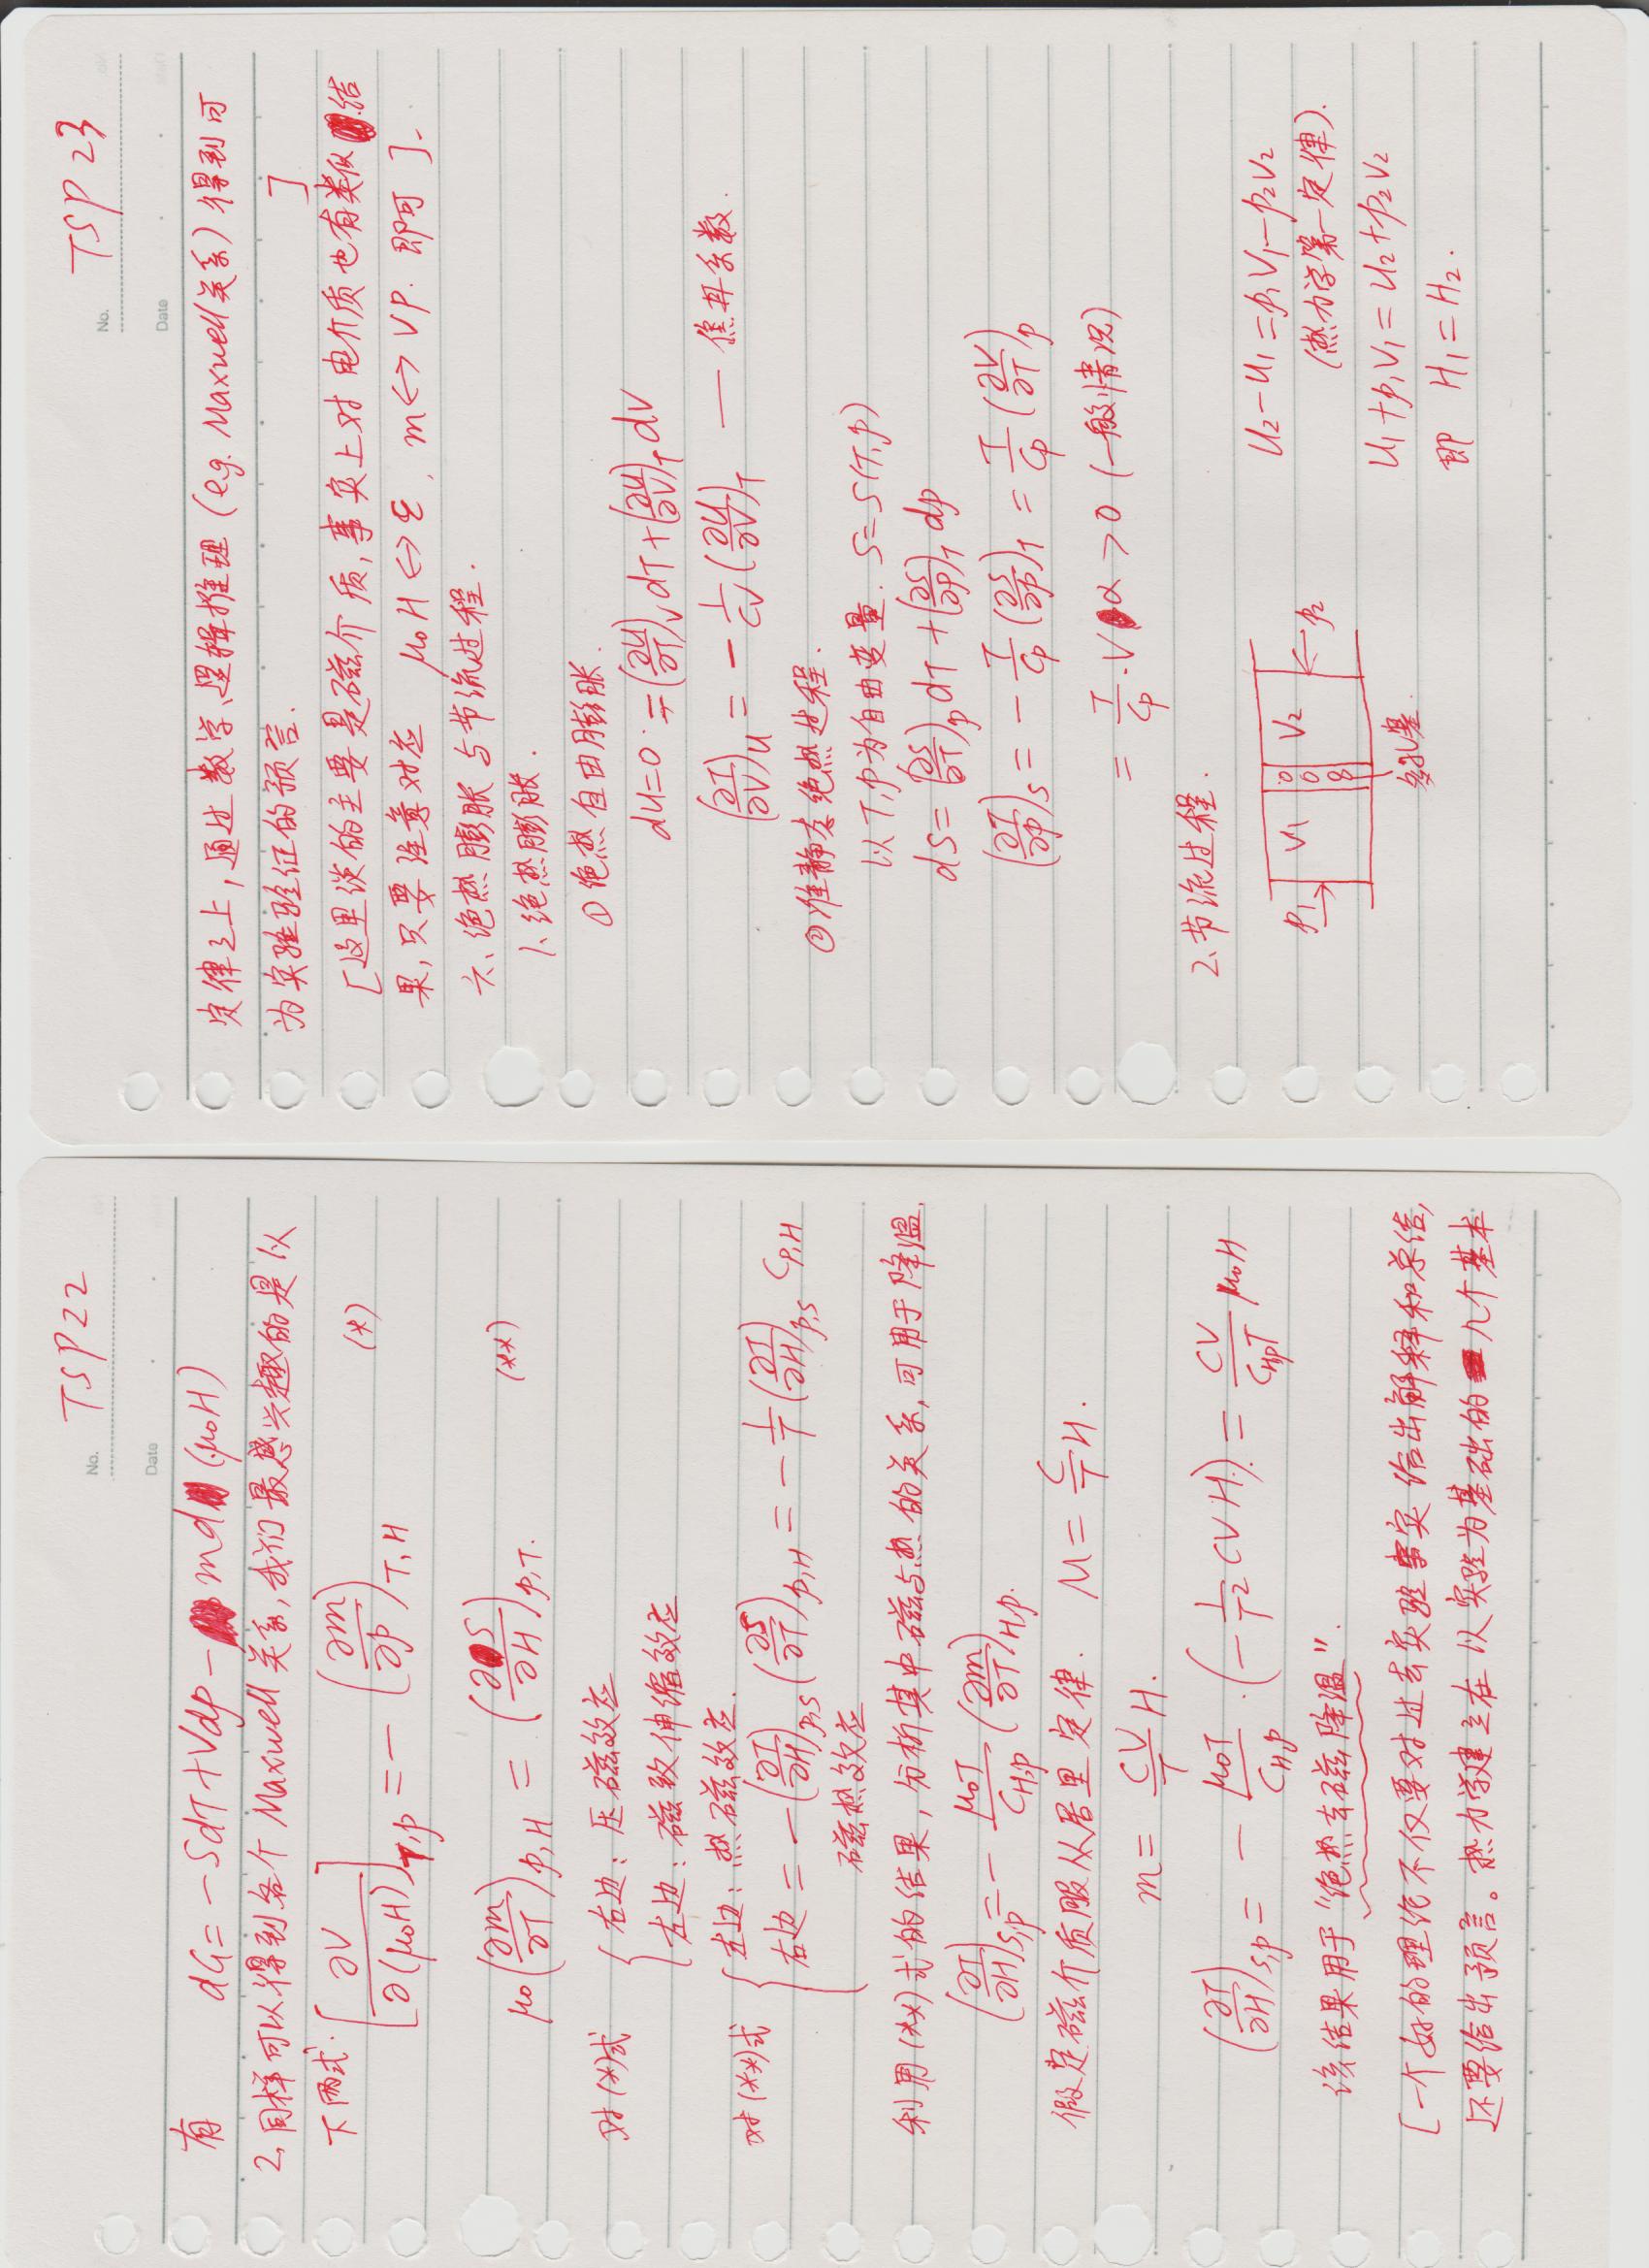 No. TSP22
Date
有 dG = -SdT + Vdp - m d (μ₀H)
2、同样可以得到各个 Maxwell 关系, 我们最感兴趣的是以
下两式. [∂V/∂(μ₀H)]_{T,p} = -(∂m/∂p)_{T,H} (*)
μ₀(∂m/∂T)_{p,H} = (∂S/∂H)_{p,T}. (**)
对(*)式 { 右边: 压磁效应
左边: 磁致伸缩效应
对(**)式 { 左边: 热磁效应.
右边 = -(∂T/∂H)_{p,S} (∂S/∂T)_{p,H} = -1/T (∂T/∂H)_{p,S} C_{p,H}
磁热效应
利用(**)式的结果, 分析其中磁与热的关系, 可用于降温.
(∂T/∂H)_{S,p} = - μ₀T/C_{H,p} (∂m/∂T)_{H,p}.
假定磁介质服从居里定律. M = C/T H.
m = CV/T H.
(∂T/∂H)_{S,p} = - μ₀T/C_{H,p} · (-1/T² CVH) = CV/(C_{H,p}T) μ₀H
该结果用于“绝热去磁降温”.
[一个好的理论不仅要对过去实验事实给出解释和总结,
还要给出预言。热力学建立在以实验为基础的几个基本
No. TSP 23
Date
定律之上, 通过数学、逻辑推理 (e.g. Maxwell关系) 得到可
为实验验证的预言. ]
[这里谈的主要是磁介质, 事实上对电介质也有类似结
果, 只要注意对应 μ₀H ↔ ε, m ↔ VP. 即可].
六、绝热膨胀与节流过程.
1、绝热膨胀.
① 绝热自由膨胀.
dU=0 = (∂U/∂T)_V dT + (∂U/∂V)_T dV
(∂T/∂V)_U = -1/C_V (∂U/∂V)_T — 焦耳系数.
② 准静态绝热过程.
以T,p为自由变量. S=S(T,p)
dS = (∂S/∂T)_p dT + (∂S/∂p)_T dp
(∂T/∂p)_S = -T/C_p (∂S/∂p)_T = T/C_p (∂V/∂T)_p
= T/C_p · Vα > 0 (一般情况)
2、节流过程.
p₁ V₁ V₂ p₂
多孔塞.
U₂-U₁ = p₁V₁-p₂V₂
(热力学第一定律).
U₁+p₁V₁ = U₂+p₂V₂
即 H₁=H₂.